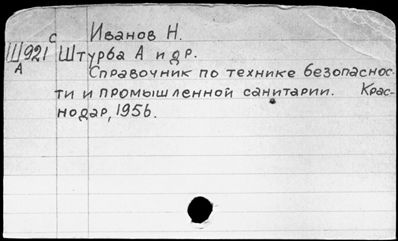 с Иванов Н.
Ш921 Штурба А и др.
А
Справочник по технике безопаснос-
ти и промышленной санитарии. Крас-
нодар, 1956.